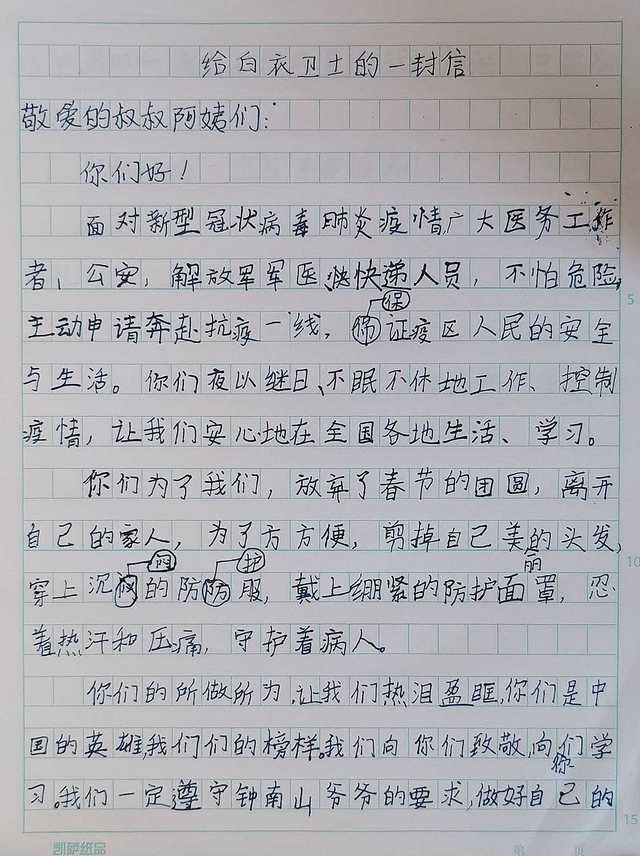 给白衣卫士的一封信
敬爱的叔叔阿姨们:
你们好!
面对新型冠状病毒肺炎疫情广大医务工作
者、公安,解放军医、快递人员,不怕危险,
保
主动申请奔赴抗疫一线,证疫区人民的安全
与生活。你们夜以继日、不眠不休地工作、控制
疫情,让我们安心地在全国各地生活、学习。
你们为了我们,放弃了春节的团圆,离开
自己的家人,为了方方便,剪掉自己美的头发,
闷 护 丽
穿上沉的防服,戴上绷紧的防护面罩,忍
着热汗和压痛,守护着病人。
你们的所做所为,让我们热泪盈眶,你们是中
国的英雄,我们们的榜样。我们向你们致敬,向们学
你
习。我们一定遵守钟南山爷爷的要求,做好自己的
5
10
15
凯萨纸品
第 页